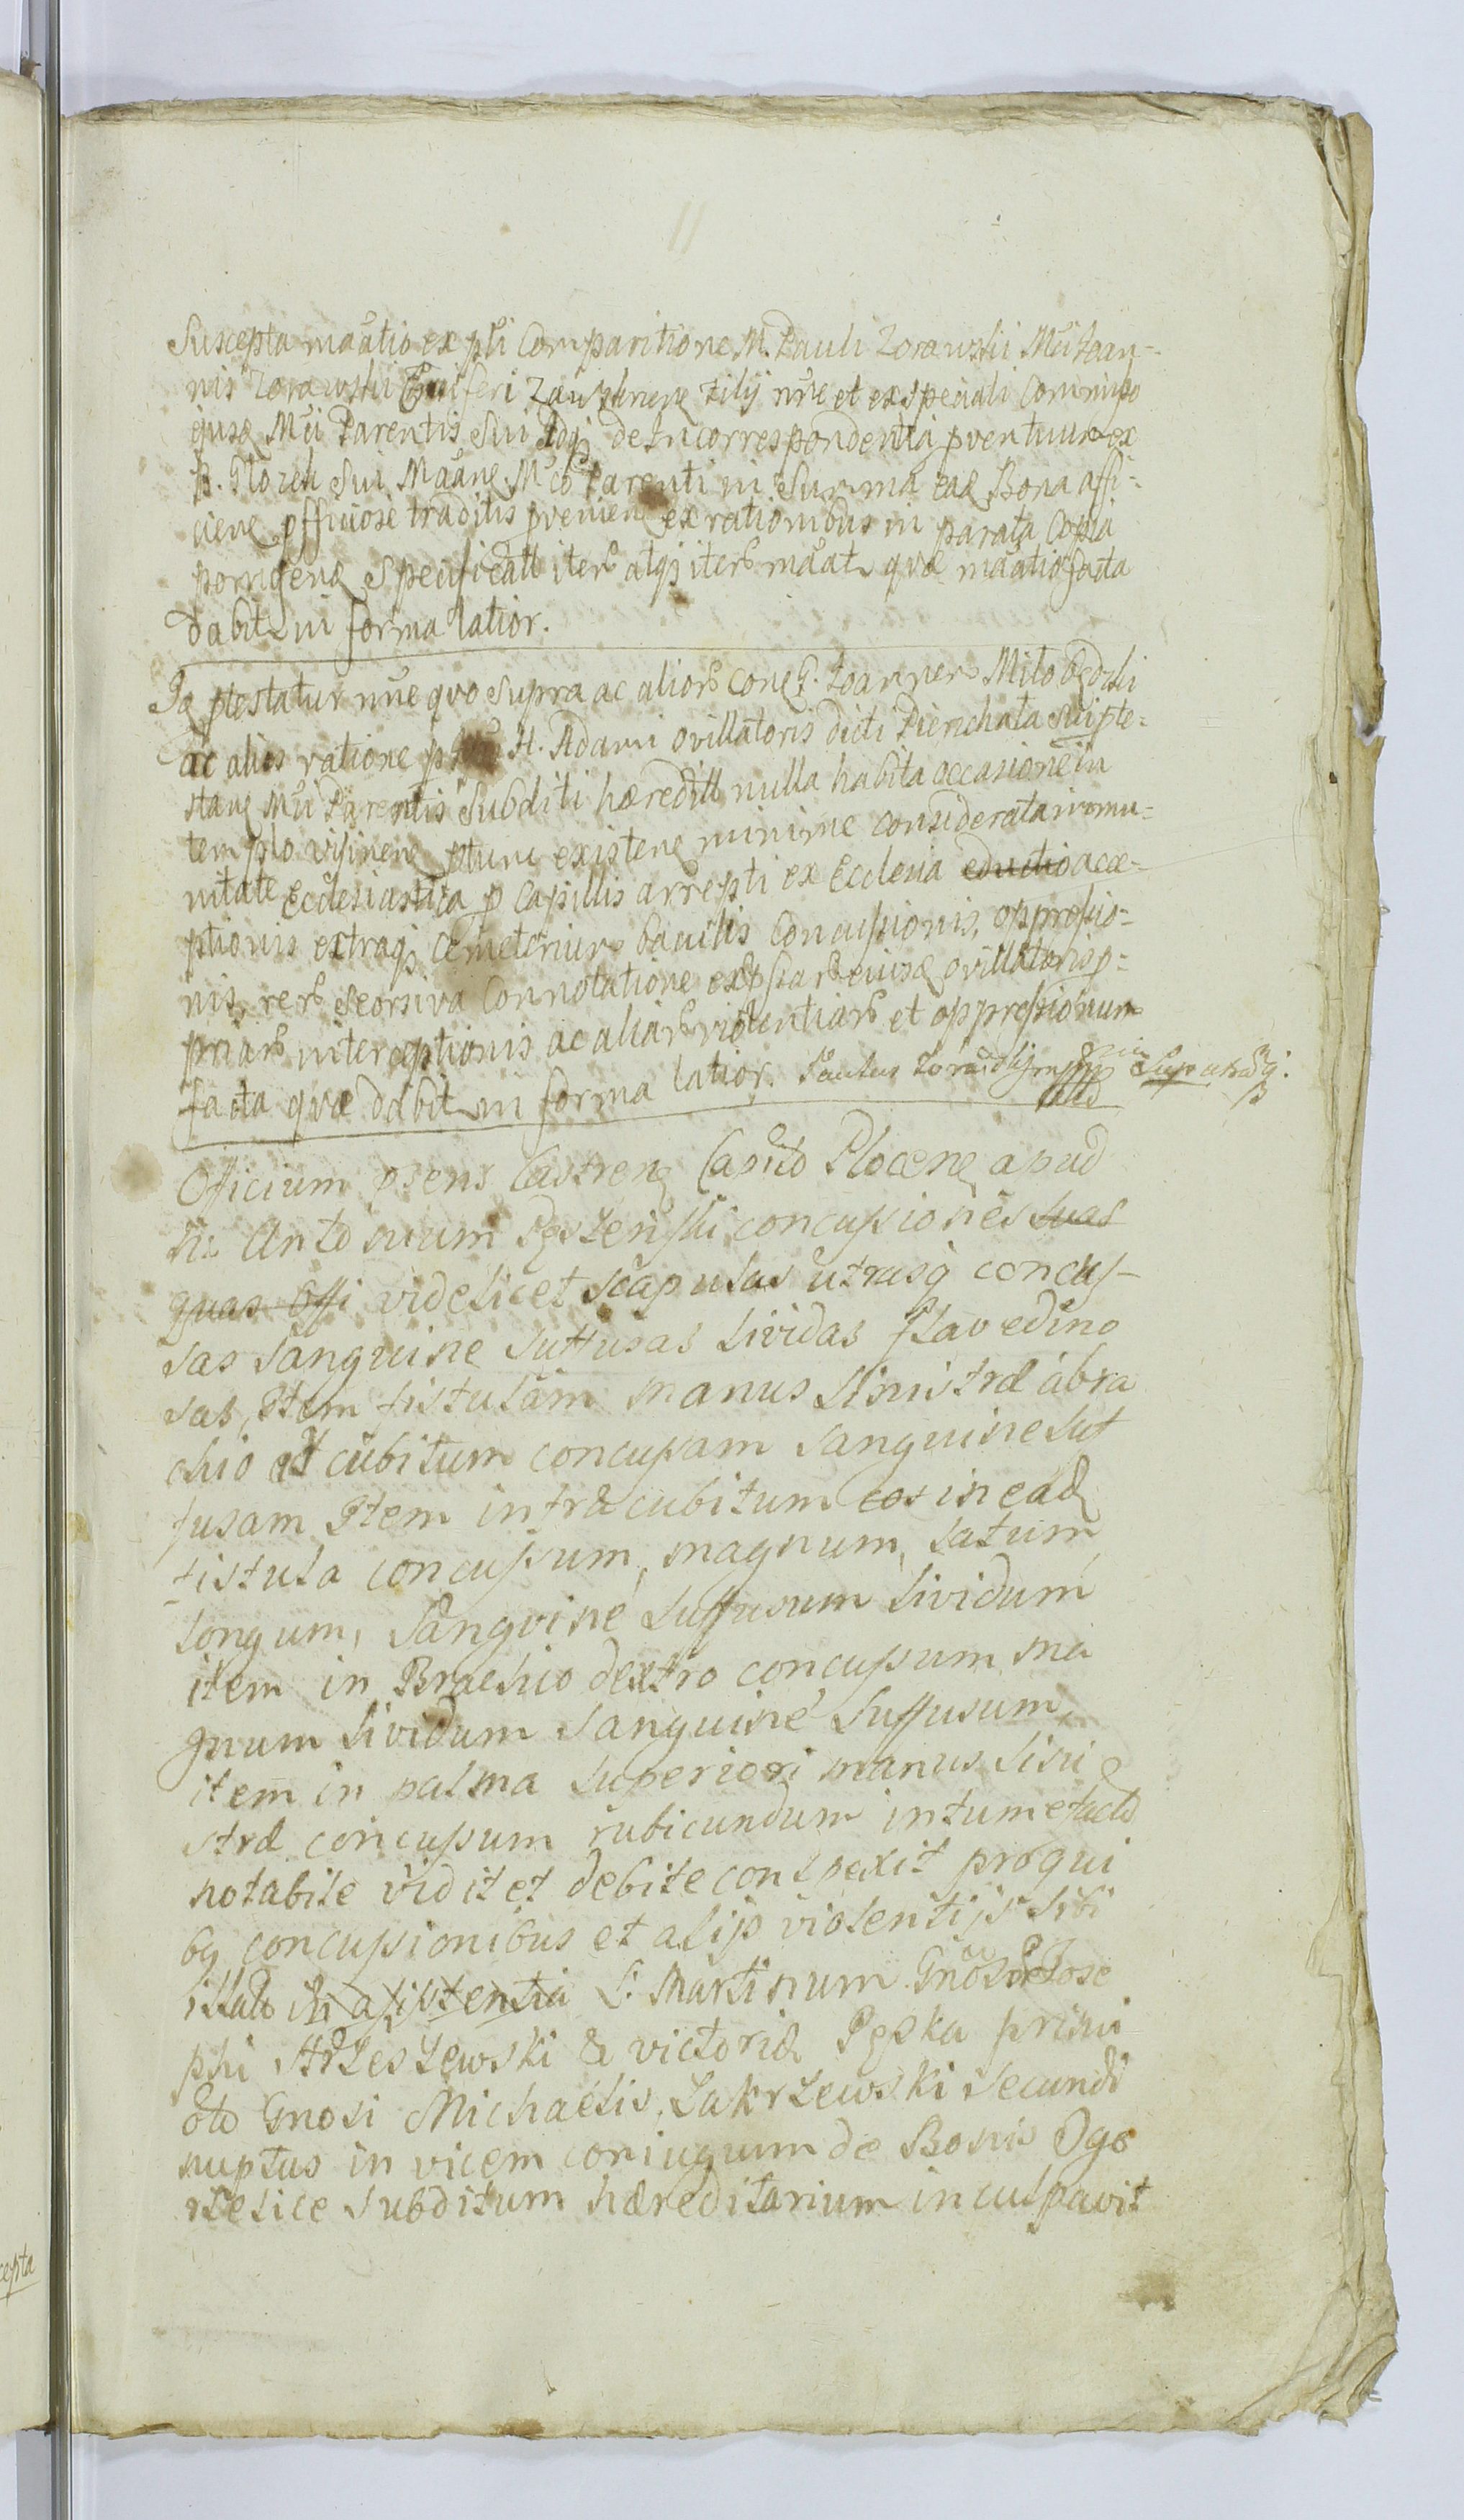 Suscepta mãatio ex pti Comparitione M. Pauli Zorawski Mci Joan-
nis Zorawski Ensiferi Zawskrnens Filij nõie et ex speciali Commisso
ejusd Mci Parentis Sui Idqz de Incorrespondentia pventuum ex
B. Plozeh Sui Mãane Mco Parenti in Summa ead Bona affi-
ciens officiose traditis pveniens ex rationibus in parata Copia
porrigend Specificatt iterꝰ atqz iterꝰ mãat quæ mãatio facta
dabit in forma latior.
Id ptestatur nõie quo supra ac aliorꝰ Con G. Joannem Milobędzki
ac alios ratione H. Adami ovillatoris dicti Pienchata sui pte-
stans Mci Parentis Subditi hæreditt nulla habita occasione in
templo existens minime considerata immu-
nitate Ecclesiastica p Capillis arrepti ex Ecclesia eductio acce-
ptionis extraqz Cemeterium baculis Concussionis, oppressio-
nis, rerꝰ Seorsiva Connotatione expssarꝰ eiusd ovillatoris p-
priarꝰ interceptionis ac aliarꝰ violentiarꝰ et oppressionum
facta quæ dabit in forma latior. Paulus
Officium psens Castrens Capitõ Plocens apud
N. Antonium concussiones suas
quas Offi videlicet scapulas utrasq concus-
sas sanguine suffusas lividas flavedino
sas, Item fistulam manus sinistræ abra
chio et cubitum concussam sanguine suf
fusam Item infra cubitum eos in ead
fistula concussum, magnum, latum,
longum, sangvine suffusum lividum
item in Brachio dextro concussum ma
gnum lividum sanguine suffusum,
item in palma superiori manus sini
stræ concussum rubicundum intumefacto
notabile vidit et debite conspexit pro qui
bq concussionibus et alijs violentijs sibi
illato in assistentia L. Martinum Gnõsor Jose
phi Strzeszewski & victoriæ Pęska primi
oto Gnosi Michaelis Zakrzewski secundi
nuptus in vicem coniugum de Bonis Ogo
rzelice subditum hæreditarium inculpavit
cepta